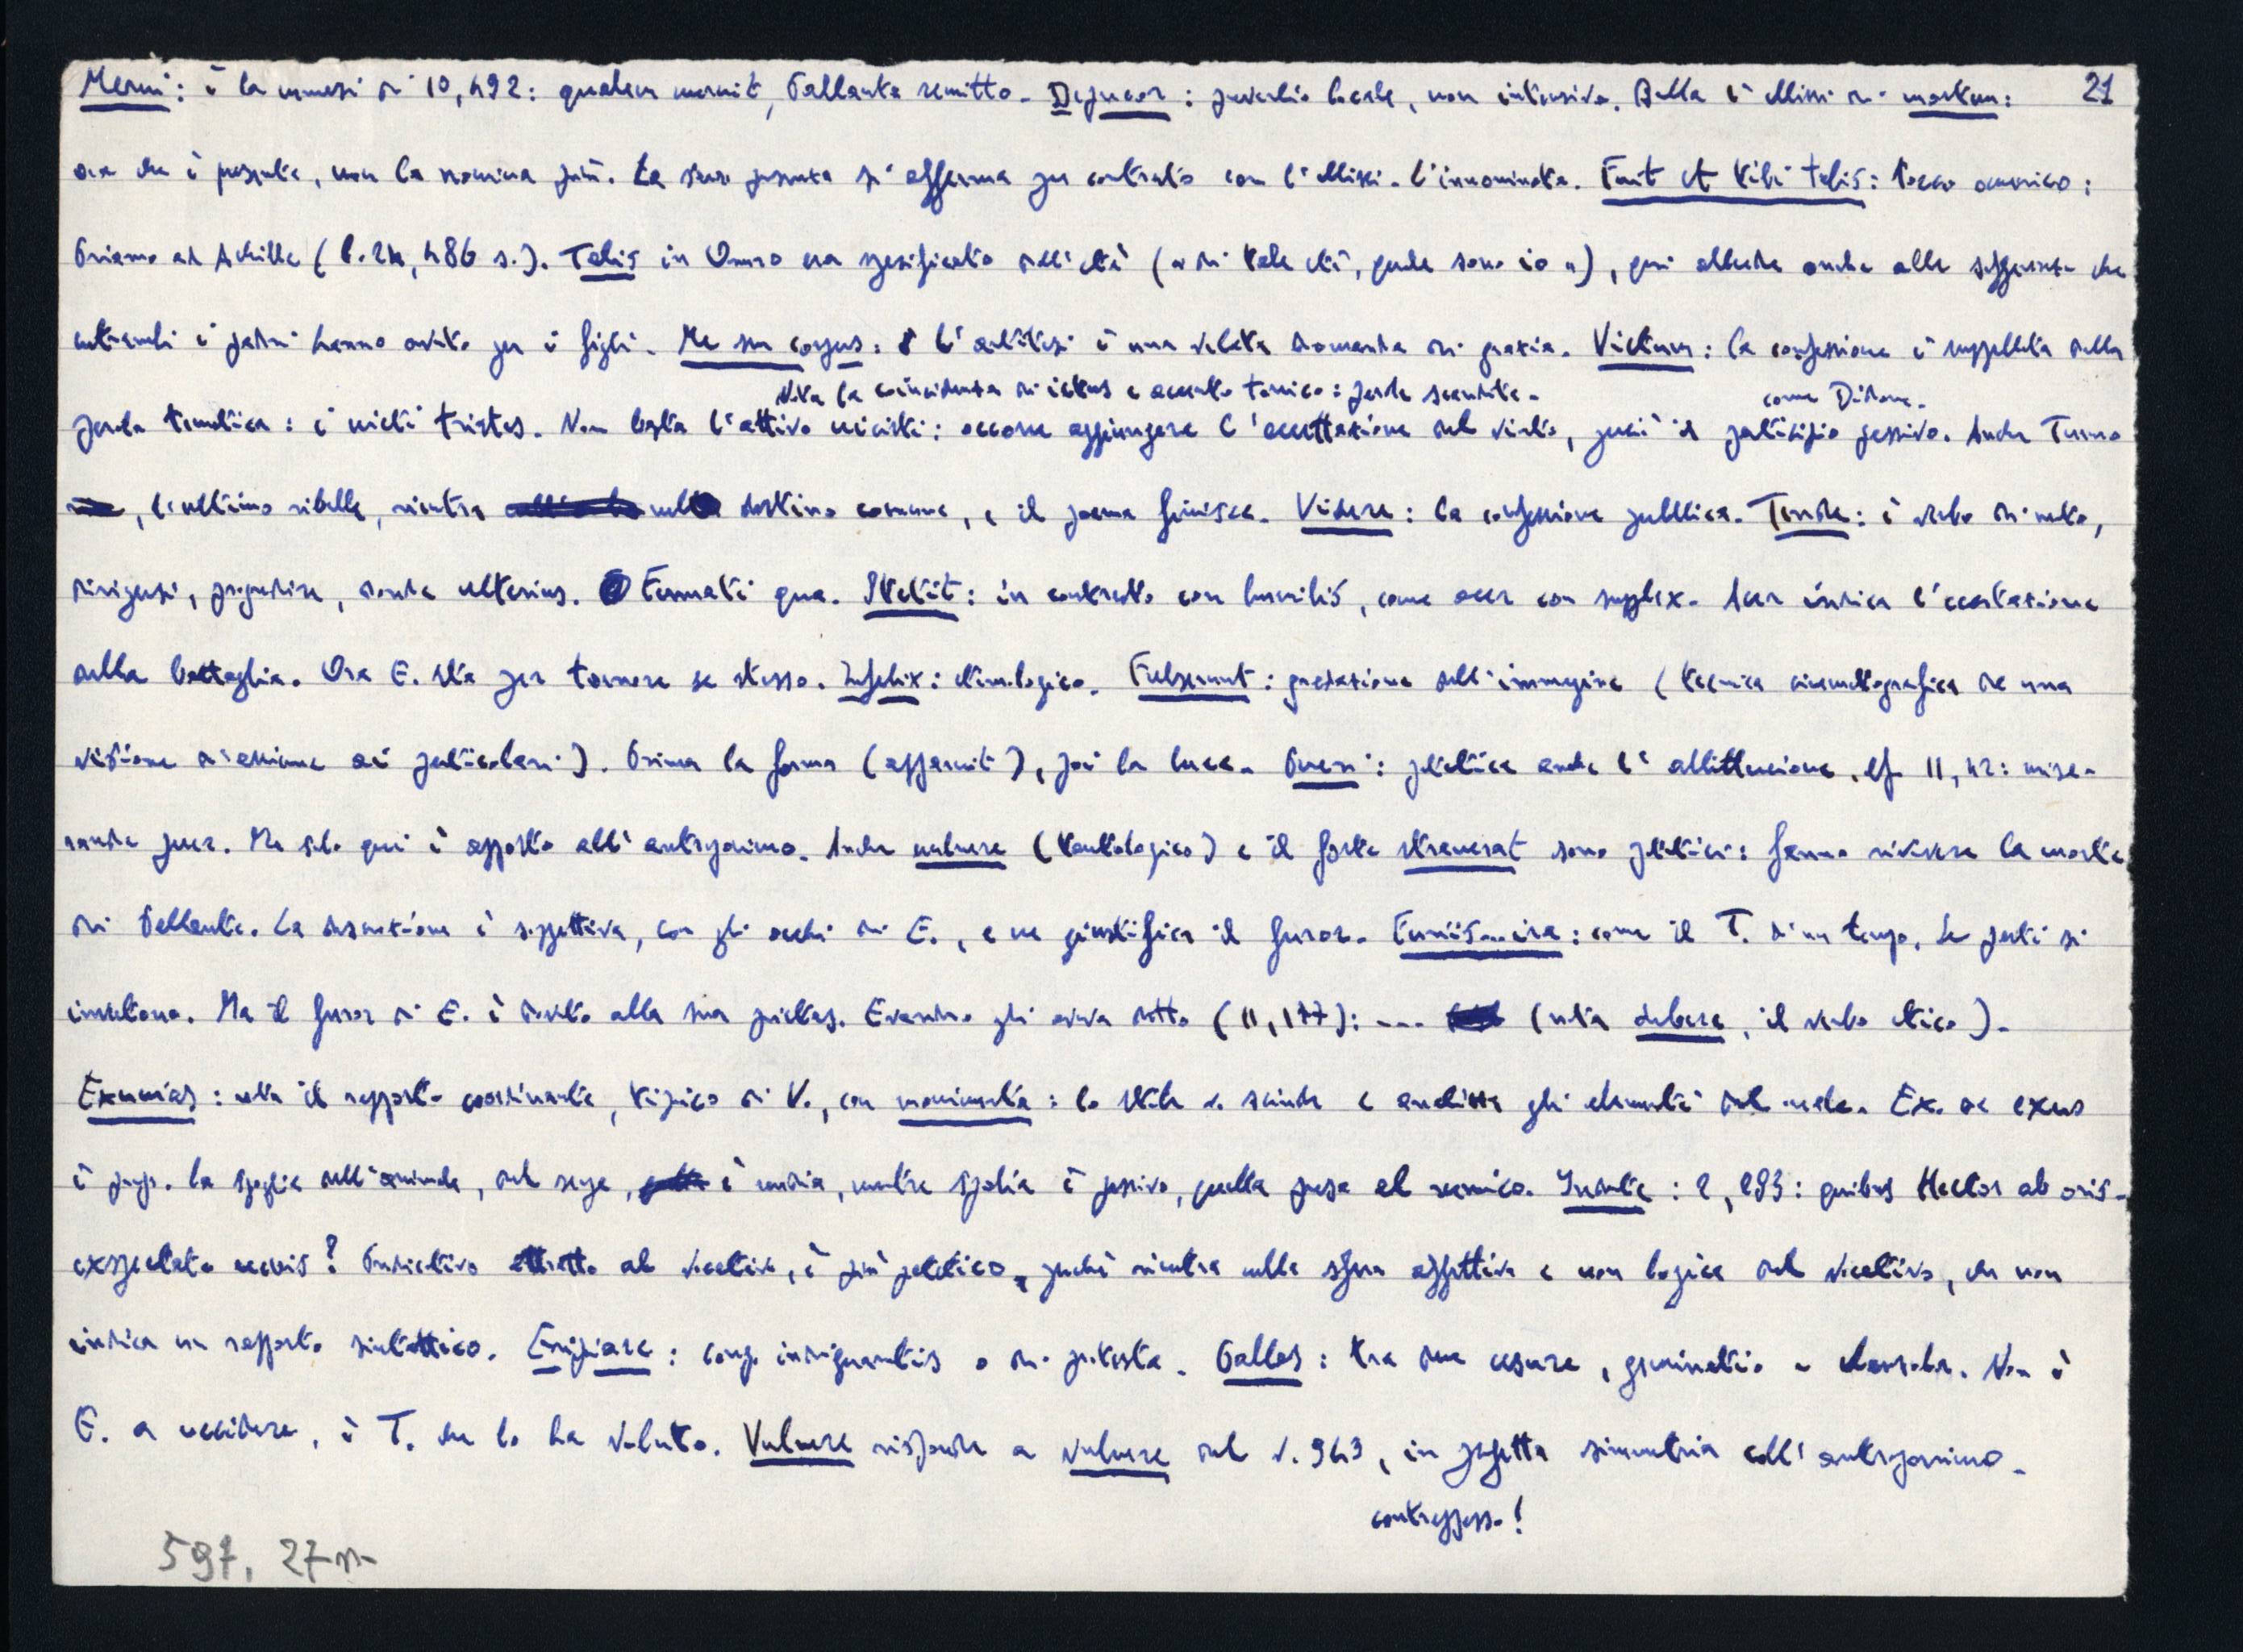 Merui: è la nemesi di 10,492: qualem meruit, Pallanta remitto. Deprecor: preverbio locale, non intensivo. Bella l'ellissi di mortem: 21
ora che è presente, non la nomina più. La sua presenza si afferma per contrasto con l'ellissi. L'innominata. Fuit et tibi talis: tocco omerico:
Priamo ad Achille (l. 24, 486 s.). Talis in Omero era specificato dell'età («di tale età, quale sono io»), qui allude anche alla sofferenza che
entrambi i padri hanno avuto per i figli. Me seu corpus: l'antitesi è una velata domanda di grazia. Victum: la confessione è suggellata dalla
Nota la coincidenza di ictus e accento tonico: parole scandite. come Didone.
parola tematica: i victi tristes. Non basta l'attivo vicisti: occorre aggiungere l'accettazione del vinto, perciò il participio passivo. Anche Turno
, l'ultimo ribelle, rientra nel destino comune, e il poema finisce. Videre: la confessione pubblica. Tende: è verbo di moto,
dirigersi, progredire, donde ulterius. Fermati qua. Stetit: in contrasto con humilis, come acer con supplex. Acer indica l'eccitazione
della battaglia. Ora E. sta per tornare se stesso. Infelix: etimologico. Fulserunt: gradazione dell'immagine (tecnica cinematografica da una
visione d'assieme ai particolari). Prima la forma (apparuit), poi la luce. Pueri: patetica anche l'allitterazione, cf. 11,42: mise-
rande puer. Ma solo qui è apposto all'antroponimo. Anche vulnere (tautologico) e il forte straverat sono patetici: fanno rivivere la morte
di Pallante. La descrizione è soggettiva, con gli occhi di E., e ne giustifica il furor. Furiis...ira: come il T. d'un tempo. Le parti si
invertono. Ma il furor di E. è dovuto alla sua pietas. Evandro gli aveva detto (11,177): ... (nota debere, il verbo etico).
Exuvias: nota il rapporto coordinante, tipico di V., con monimenta: lo stile che scinde e analizza gli elementi del reale. Ex. da exuo
è prop. la spoglia dell'animale, del serpe, è media, mentre spolia è passivo, quella presa al nemico. Indute: 2, 283: quibus Hector ab oris
exspectate venis? Predicativo attratto al vocativo, è più patetico, perché rientra nella sfera affettiva e non logica del vocativo, che non
indica un rapporto sintattico. Eripiare: cong. indignantis o di protesta. Pallas: tra due cesure, geminatio e anafora. Non è
E. a uccidere, è T. che lo ha voluto. Vulnere risponde a vulnere del v. 943, in perfetta simmetria coll'antroponimo.
contrappasso!
597, 27 n.